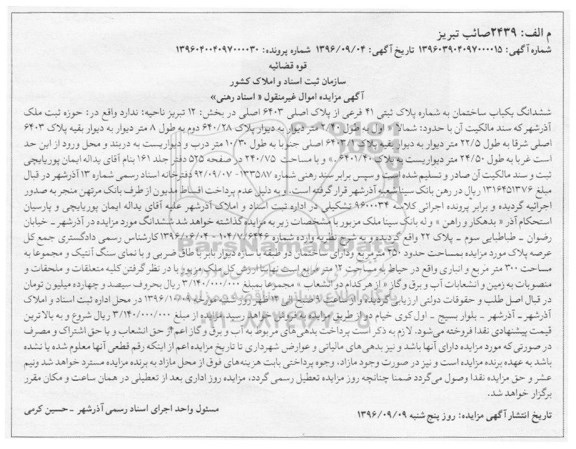 م الف: ۲۴۳۹صائب تبریز
شماره آگهی: ۱۳۹۶۰۳۹۰۴۰۹۷۰۰۰۰۱۵ تاریخ آگهی: ۱۳۹۶/۰۹/۰۴ شماره پرونده: ۱۳۹۶۰۴۰۰۴۰۹۷۰۰۰۰۳۰
قوه قضائیه
سازمان ثبت اسناد و املاک کشور
آگهی مزایده اموال غیرمنقول « اسناد رهنی»
ششدانگ یکباب ساختمان به شماره پلاک ثبتی ۴۱ فرعی از پلاک اصلی ۶۴۰۳ اصلی در بخش: ۱۲ تبریز ناحیه: ندارد واقع در: حوزه ثبت ملک
آذرشهر که سند مالکیت آن با حدود: شمالا در اول به طول ۲/۱۰ متر دیوار به دیوار پلاک ۶۴۰/۲۸ دوم به طول ۸ متر دیوار به دیوار بقیه پلاک ۶۴۰۳
اصلی شرقا به طول ۲۲/۵ متر دیوار به دیوار بقیه پلاک ۶۴۰۳ اصلی جنوبا به طول ۱۰/۳۰ متر درب و دیواریست به دربند و محل ورود از این حد
است غربا به طول ۲۴/۵۰ متر دیواریست به پلاک ۶۴۰۱/۴۰ و با مساحت ۲۴۰/۷۵ صفحه ۵۲۵ دفتر جلد ۱۶۱ بنام آقای یداله ایمان پوربایجچی
ثبت و سند مالکیت آن صادر و تسلیم شده است و سپس برابر سند رهنی شماره ۱۳۳۵۸۷ -۹۲/۰۹/۰۷ دفترخانه اسناد رسمی شماره ۱۳ آذرشهر در قبال
مبلغ ۱۳۱۶۴۵۱۳۷۶ ریال در رهن بانک سینا شعبه آذرشهر قرار گرفته است. و به دلیل عدم پرداخت اقساط مدیون از طرف بانک مرتهن منجر به صدور
اجرائیه گردیده و برابر پرونده اجرائی کلاسه ۹۶۰۰۰۳۴ تشکیلی در اداره ثبت اسناد و املاک آذرشهر علیه آقای یداله ایمان پوربایجی و پارسیان
استحکام آذر « بدهکار و راهن » و له بانک سینا ملک مزبور با مشخصات زیر به مزایده گذاشته خواهد شد. ششدانگ مورد مزایده در آذرشهر - خیابان
رضوان - طباطبایی سوم - پلاک ۲۲ واقع گردیده و به شرح نظریه وارده شماره ۱۰۴/۷/۶۴۴۶ - ۱۳۹۶/۰۶/۰۴ کارشناس رسمی دادگستری جمع کل
عرصه پلاک مورد مزایده بمساحت حدود ۲۵۰ مترمربع ودارای ساختمان دو طبقه با سازه دیوار باربر با طاق ضربی و با نمای سنگ آنتیک و مجموعا به
مساحت ۳۰۰ متر مربع و انباری واقع در حیاط به مساحت ۱۲ متر مربع است نهایتا ارزش کل ملک مزبور با در نظر گرفتن کلیه متعلقات و ملحقات و
منصوبات به زمین و انشعابات آب و برق و گاز « از هر کدام دو انشعاب » مجموعا بمبلغ ۳/۱۴۰/۰۰۰/۰۰۰ ریال بحروف سیصد و چهارده میلیون تومان
در قبال اصل طلب و حقوقات دولتی ارزیابی گردیده و از ساعت ۹ صبح الی ۱۲ ظهر روز یکشنبه مورخه ۱۳۹۶/۱۰/۰۹ در محل اداره ثبت اسناد و املاک
آذرشهر - آذرشهر - بلوار بسیج - اول کوی خیام دو از طریق مزایده به فروش خواهد رسید. مزایده از مبلغ ۳/۱۴۰/۰۰۰/۰۰۰ ریال شروع و به بالاترین
قیمت پیشنهادی نقدا فروخته می‌شود. لازم به ذکر است پرداخت بدهی‌های مربوط به آب و برق و گاز اعم از حق انشعاب و یا حق اشتراک و مصرف
در صورتی که مورد مزایده دارای آنها باشد و نیز بدهی‌های مالیاتی و عوارض شهرداری تا تاریخ مزایده اعم از اینکه رقم قطعی آنها معلوم شده یا نشده
باشد به عهده برنده مزایده است و نیز در صورت وجود مازاد، وجوه پرداختی بابت هزینه‌های فوق از محل مازاد به برنده مزایده مسترد خواهد شد ونیم
عشر و حق مزایده نقدا وصول می‌گردد ضمنا چنانچه روز مزایده تعطیل رسمی گردد، مزایده روز اداری بعد از تعطیلی در همان ساعت و مکان مقرر
برگزار خواهد شد.
تاریخ انتشار آگهی مزایده: روز پنج شنبه ۱۳۹۶/۰۹/۰۹ مسئول واحد اجرای اسناد رسمی آذرشهر - حسین کرمی